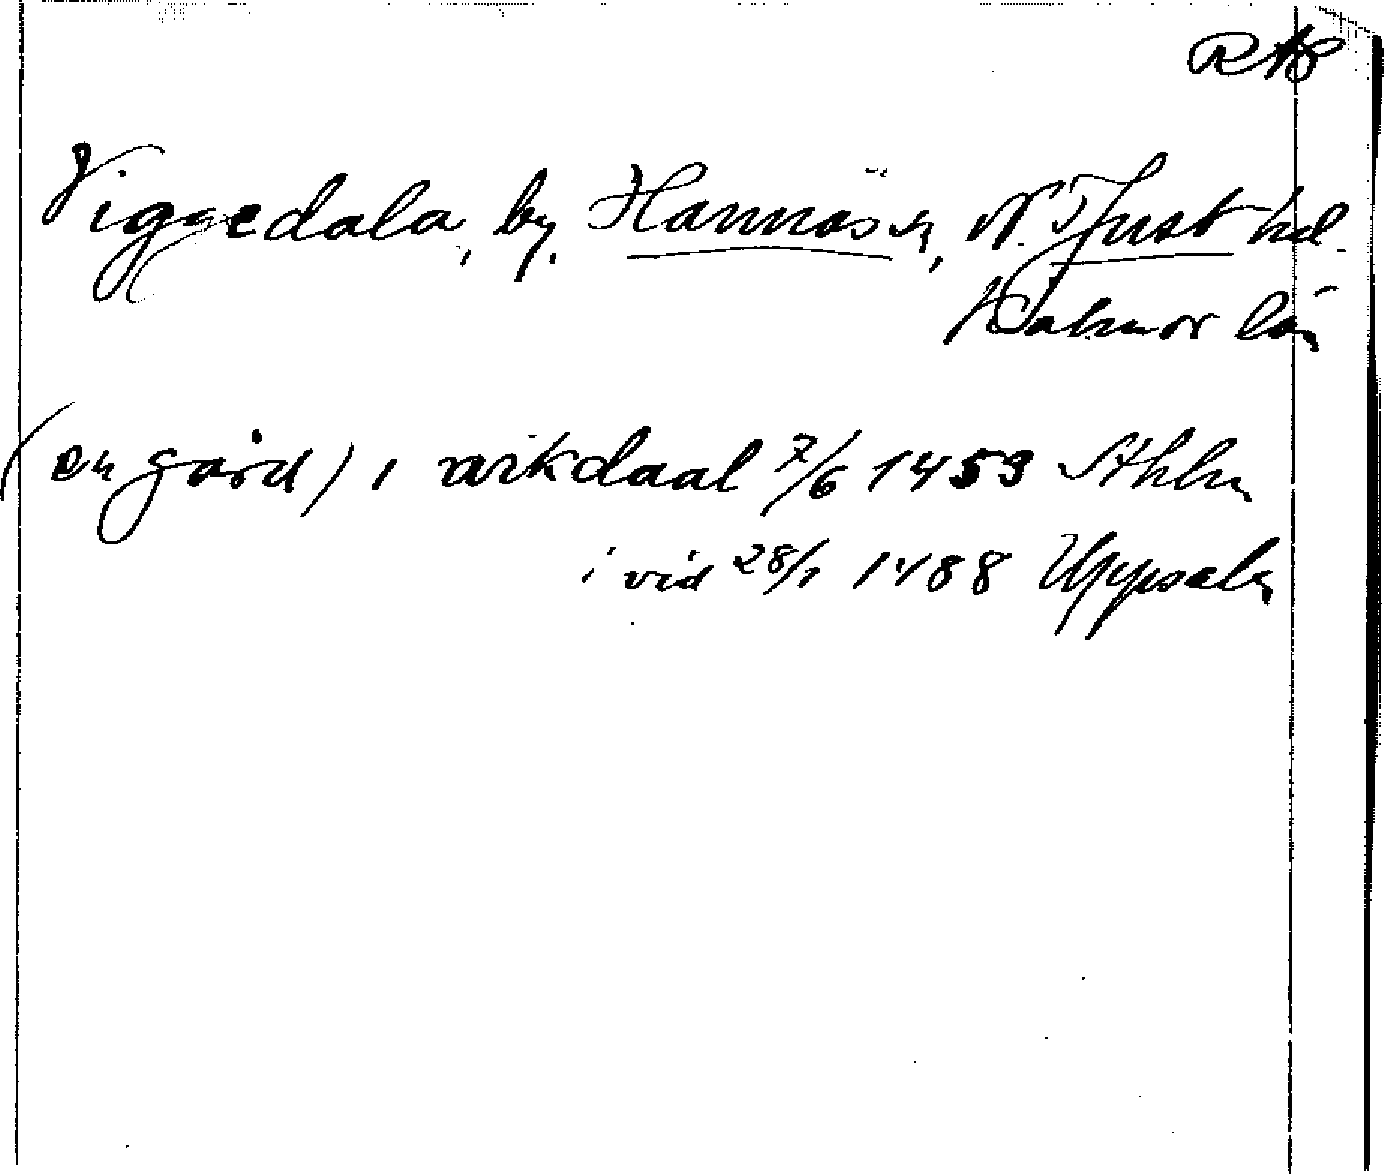 RAP
Viggedala, by, Hannäs sn, N. Tjust hd.
Kalmar län
(en gård) i wikdaal 7/6 1459 Sthlm
i vid 28/1 1488 Uppsala